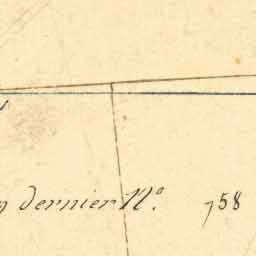 dernier N.º 758